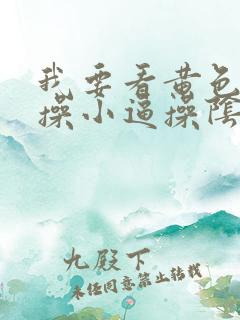 我要看黄色
操小逼操阴
九殿下
未经同意禁止转载